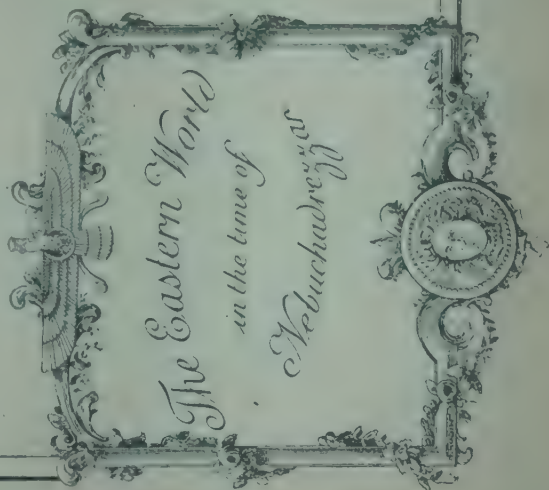 The Eastern World
in the time of
Nebuchadrezzar